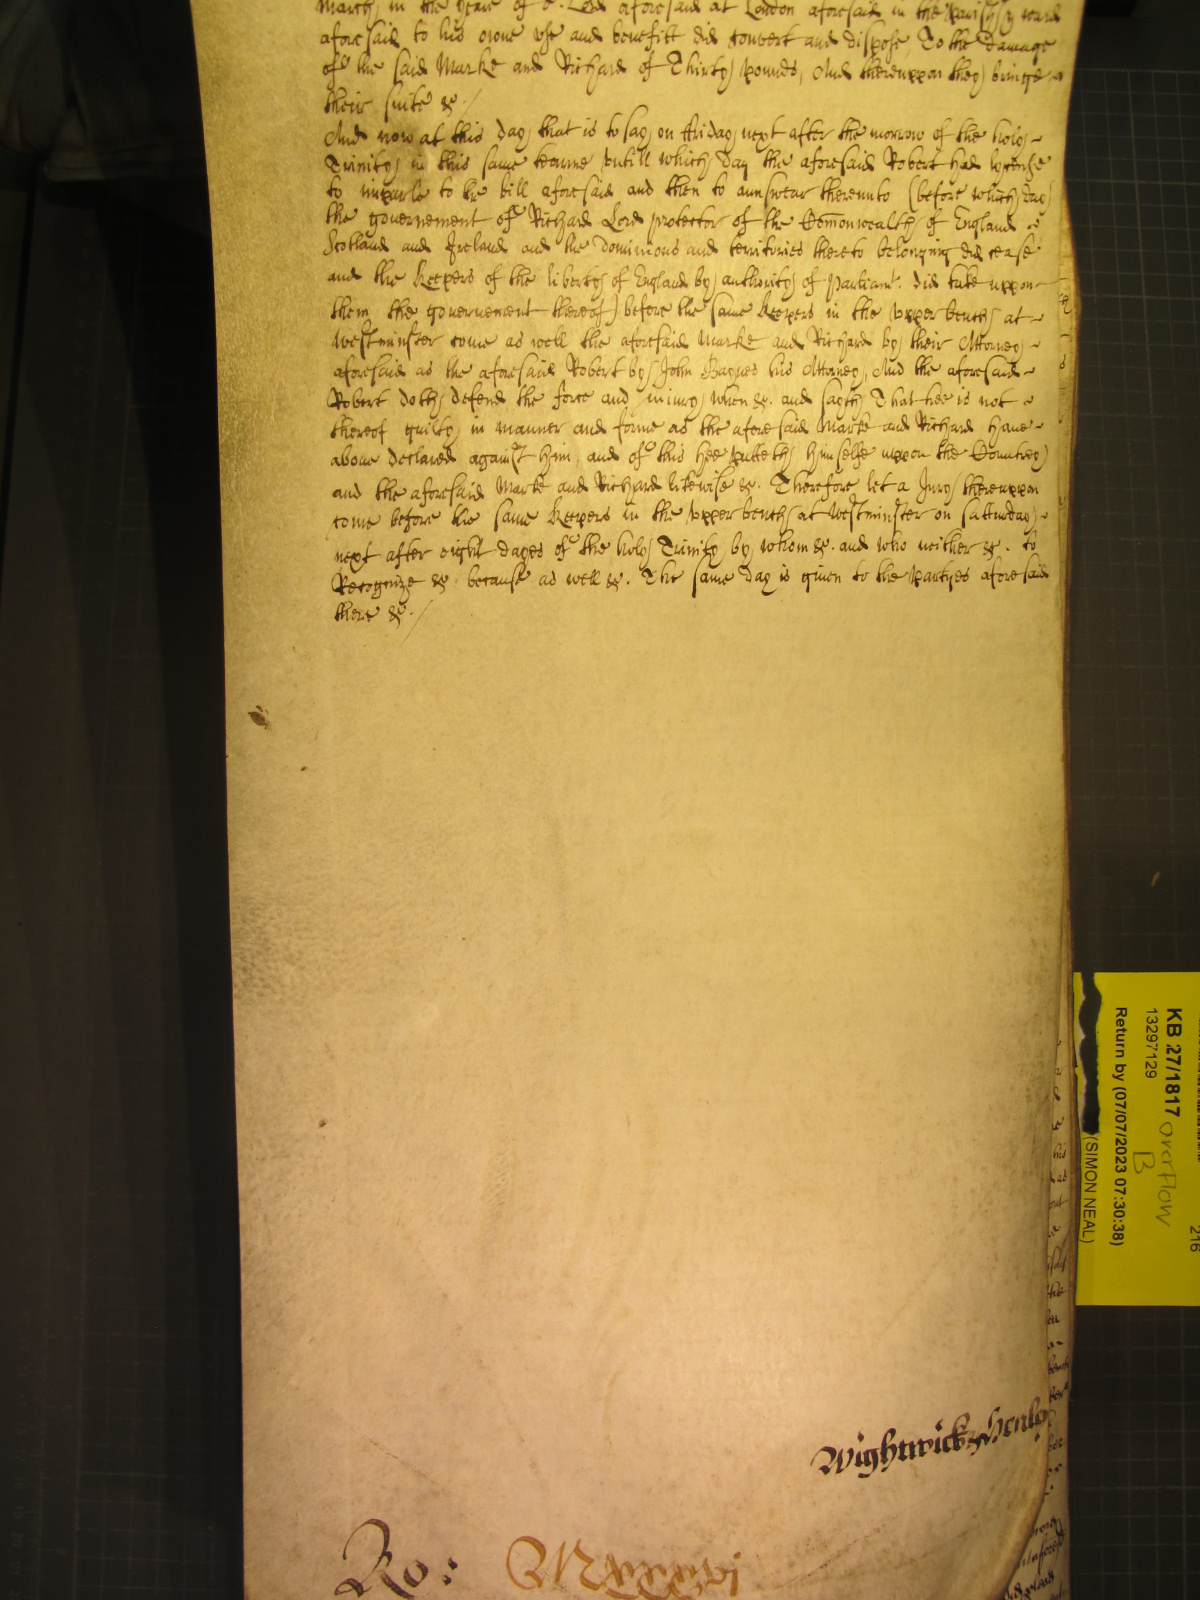 March in the yeare of or. Lord aforesaid at London aforesaid in the parish & ward
aforesaid to his owne vse and benefitt did convert and dispose To the damage
of the said Marke and Richard of Thirty pounds, And thereuppon they bringe
their suite &c. /
And now at this day that is to say on ffriday next after the morrow of the holy
Trinity in this same tearme vntill which day the aforesaid Robert had lycense
to imparle to the bill aforesaid and then to aunswear thereunto (before which day
the governement of Richard Lord protector of the Comonwealth of England
Scotland and Ireland and the dominions and territories thereto belonging did cease
and the Keepers of the liberty of England by authority of Parliamt. did take uppon
them the governement thereof) before the same Keepers in the vpper bench at
Westminster come as well the aforesaid Marke and Richard by their Attorney
aforesaid as the aforesaid Robert by John his Attorney, And the aforesaid
Robert doth defend the force and iniury when &c. and sayth That hee is not
thereof guilty in manner and forme as the aforesaid Marke and Richard haue
aboue declared against him, and of this hee putteth himselfe uppon the Countrey
and the aforesaid Marke and Richard likewise &c. Therefore let a Jury thereuppon
come before the same Keepers in the vpper bench at Westminster on satturday
next after eight dayes of the holy Trinity by whom &c. and who neither &c. to
Recognize &c. because as well &c. The same day is given to the partyes aforesaid
there &c. /
Wightwick & Henley
Ro:
KB 27/1817 overflow B
13297129
Return by (07/07/2023 07:30:38)
(SIMON NEAL)
216